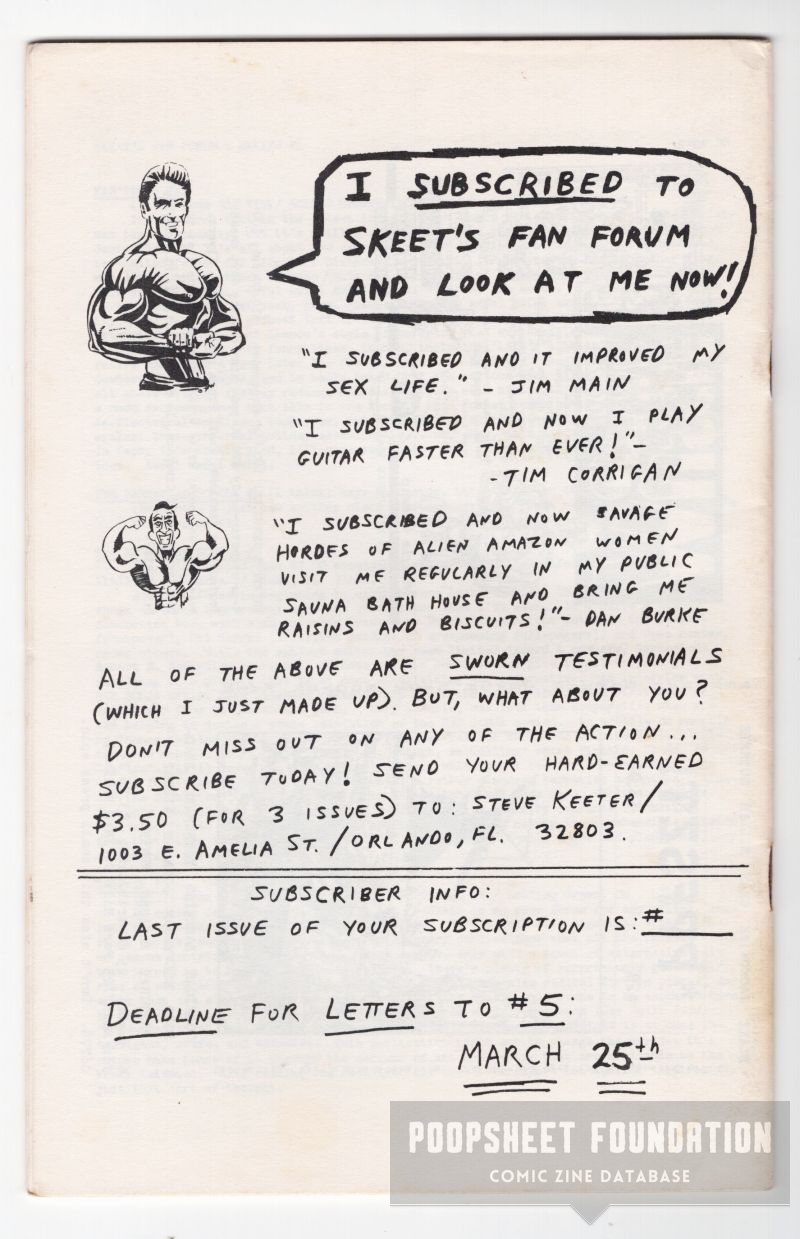 I SUBSCRIBED TO
SKEET'S FAN FORUM
AND LOOK AT ME NOW!
"I SUBSCRIBED AND IT IMPROVED MY
SEX LIFE." - JIM MAIN
"I SUBSCRIBED AND NOW I PLAY
GUITAR FASTER THAN EVER!"-
-TIM CORRIGAN
"I SUBSCRIBED AND NOW SAVAGE
HORDES OF ALIEN AMAZON WOMEN
VISIT ME REGULARLY IN MY PUBLIC
SAUNA BATH HOUSE AND BRING ME
RAISINS AND BISCUITS!"- DAN BURKE
ALL OF THE ABOVE ARE SWORN TESTIMONIALS
(WHICH I JUST MADE UP). BUT, WHAT ABOUT YOU?
DON'T MISS OUT ON ANY OF THE ACTION...
SUBSCRIBE TODAY! SEND YOUR HARD-EARNED
$3.50 (FOR 3 ISSUES) TO: STEVE KEETER/
1003 E. AMELIA ST./ORLANDO, FL. 32803.
SUBSCRIBER INFO:
LAST ISSUE OF YOUR SUBSCRIPTION IS:#
DEADLINE FOR LETTERS TO #5:
MARCH 25th
POOPSHEET FOUNDATION
COMIC ZINE DATABASE